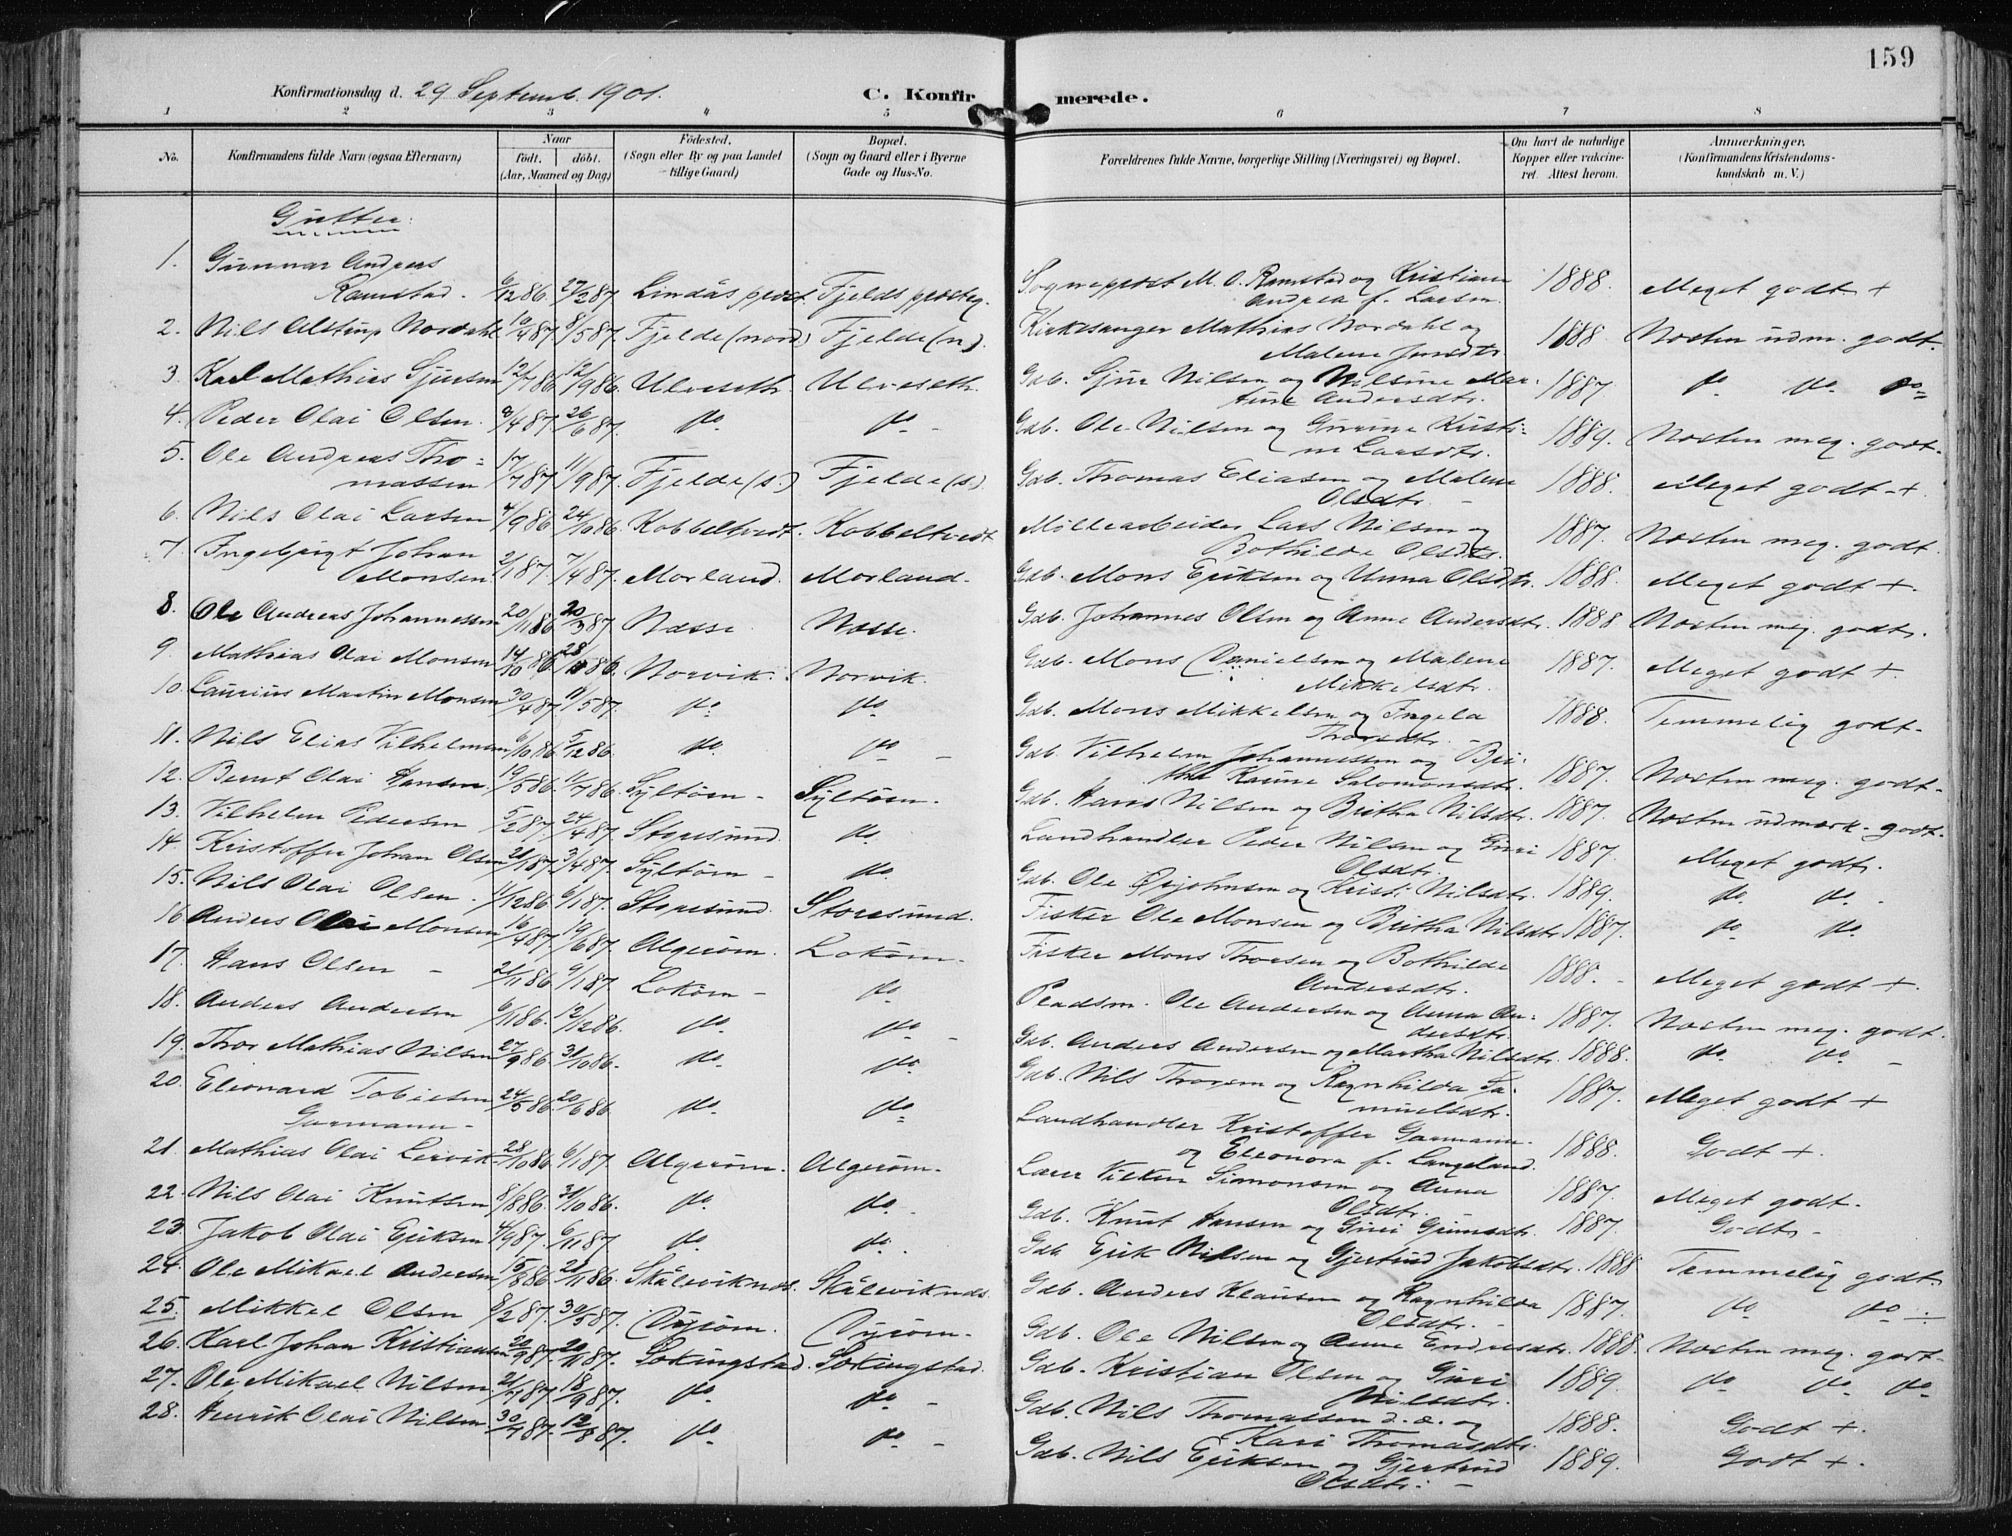 159
Konfirmationsdag d. 29 Septemb. 1901.
C. Konfirmerede.
1 2 3 4 5 6 7 8
No.
Konfirmandens fulde Navn (ogsaa Efternavn)
Naar
födt. döbt.
(Aar, Maaned og Dag)
Födested.
(Sogn eller By og paa Landet
tillige Gaard)
Bopæl.
(Sogn og Gaard eller i Byerne
Gade og Hus-No.
Forældrenes fulde Navne, borgerlige Stilling (Næringsvei) og Bopæl.
Om havt de naturlige
Kopper eller vakcine-
ret. Attest herom.
Anmærkninger,
(Konfirmandens Kristendoms-
kundskab m. V.)
Gutter:
1. Gunnar Andreas
Ramstad. 6/12 86. 27/2 87. Lindås prest. Fjelds presteg. Sogneprest M. O. Ramstad og Kristiane 1888. Meget godt +
Andrea f. Larsen.
2. Nils Alstrup Nordahl 10/4 87. 8/5 87. Fjelde (nord) Fjelde (n). Kirkesanger Mathias Nordahl og 1888 Næsten udm. godt.
Malene Jensdtr.
3. Karl Mathias Sjursen 12/7 86. 12/9 86. Ulveseth. Ulveseth. Gdb. Sjur Nilsen og Nilsine Mar- 1887. do do do
tine Andersdtr.
4. Peder Olai Olsen. 3/4 87. 26/6 87. do do Gdb. Ole Nilsen og Gurine Kristi- 1889. Næsten meg. godt.
ne Larsdtr.
5. Ole Andreas Tho-
massen 17/7 87. 11/9 87. Fjelde (s.) Fjelde (s.) Gdb. Thomas Eliasen og Malene 1888. Meget godt +
Olsdtr.
6. Nils Olai Larsen 4/9 86. 24/10 86. Kobbeltvedt. Kobbeltvedt Møllearbeider Lars Nilsen og 1887. Næsten meg. godt.
Bothilde Olsdtr.
7. Ingebrigt Johan
Monsen. 2/1 87. 7/4 87. Morland. Morland. Gdb. Mons Eriksen og Unna Olsdtr. 1888. Meget godt +
8. Ole Andreas Johannessen 20/11 86 20/3 87. Næsse. Næsse. Gdb. Johannes Olsen og Anne Andersdtr. 1888 Næsten meg. godt.
9. Mathias Olai Monsen 14/10 86. 28/11 86. Norvik. Norvik. Gdb. Mons Danielsen og Malene 1887. Meget godt +
Mikkelsdtr.
10. Laurius Martin Monsen 30/4 87. 11/5 87. do do Gdb. Mons Mikkelsen og Ingela 1888. Temmelig godt.
Thorsdtr.
11. Nils Elias Vilhelmsen 6/10 86. 5/12 86. do do Gdb. Vilhelm Johannessen og Bri- 1887. Næsten meg. godt.
tha Karine Salomonsdtr.
12. Bernt Olai Hansen. 19/5 86. 11/7 86. Syltøen. Syltøen. Gdb. Hans Nilsen og Britha Nilsdtr. 1887. Næsten udmærk. godt.
13. Vilhelm Pedersen 5/2 87. 24/4 87. Storesund. do. Landhandler Peder Nilsen og Guri 1887. Meget godt.
Olsdtr.
14. Kristoffer Johan Olsen 21/1 87. 3/4 87. Syltøen do. Gdb. Ole Ørjohnsen og Kristi Nilsdtr. 1889. do. do.
15. Nils Olai Olsen. 11/12 86. 6/1 87. Storesund. Storesund. Fisker Ole Monsen og Britha Nilsdtr. 1887. do do.
16. Anders Olai Monsen 16/4 87. 19/6 87. Algerøen. Lokøen. Fisker Mons Thorsen og Bothilde 1888. Meget godt +
Andersdtr.
17. Hans Olsen 21/11 86. 9/1 87. Lokøen do Pladsm. Ole Andersen og Anna An- 1887. Næsten meg. godt.
dersdtr.
18. Anders Andersen 6/11 86. 12/12 86. do. do Gdb. Anders Andersen og Martha Nilsdtr. 1888. do. do
19. Thor Mathias Nilsen 27/9 86. 31/10 86. do. do. Gdb. Nils Thorsen og Ragnhilda Sa- 1887. Meget godt +
muelsdtr.
20. Eleonard Tobiesen
Garmann 24/5 86. 20/6 86. do. do. Landhandler Kristoffer Garmann 1888. Godt +.
og Eleonora f. Langeland.
21. Mathias Olai Lervik 28/10 86. 6/1 87. Algerøen. Algerøen. Lærer Vilken Simonsen og Anna 1887. Meget godt.
Olsdtr.
22. Nils Olai Knutsen 8/8 86. 31/10 86. do. do. Gdb. Knut Hansen og Guri Grimsdtr. 1887. Godt.
23. Jakob Olai Eriksen 4/9 87. 6/11 87 do. do. Gdb Erik Nilsen og Gjertrud Jakobsdtr. 1888 Temmelig godt.
24. Ole Mikael Andersen 15/8 86. 21/11 86. Skåleviknds. Skåleviknds. Gdb. Anders Klausen og Ragnhilda 1887. do do
Olsdtr.
25. Mikkel Olsen 8/2 87. 30/5 87. Dyrøen. Dyrøen. Gdb. Ole Nilsen og Anne Endresdtr. 1888. Næsten meg. godt.
26. Karl Johan Kristiansen 20/9 87. 20/11 87. Sokingstad. Sokingstad. Gdb. Kristian Olsen og Guri 1889. do do do
Nilsdtr.
27. Ole Mikael Nilsen 21/7 87. 18/9 87. do. do Gdb. Nils Thomassen d. æ. og 1888. Godt +.
Kari Thomasdtr.
28. Henrik Olai Nilsen 30/4 87. 12/8 87. do. do Gdb. Nils Eriksen og Gjertrud 1889. Godt +.
Olsdtr.